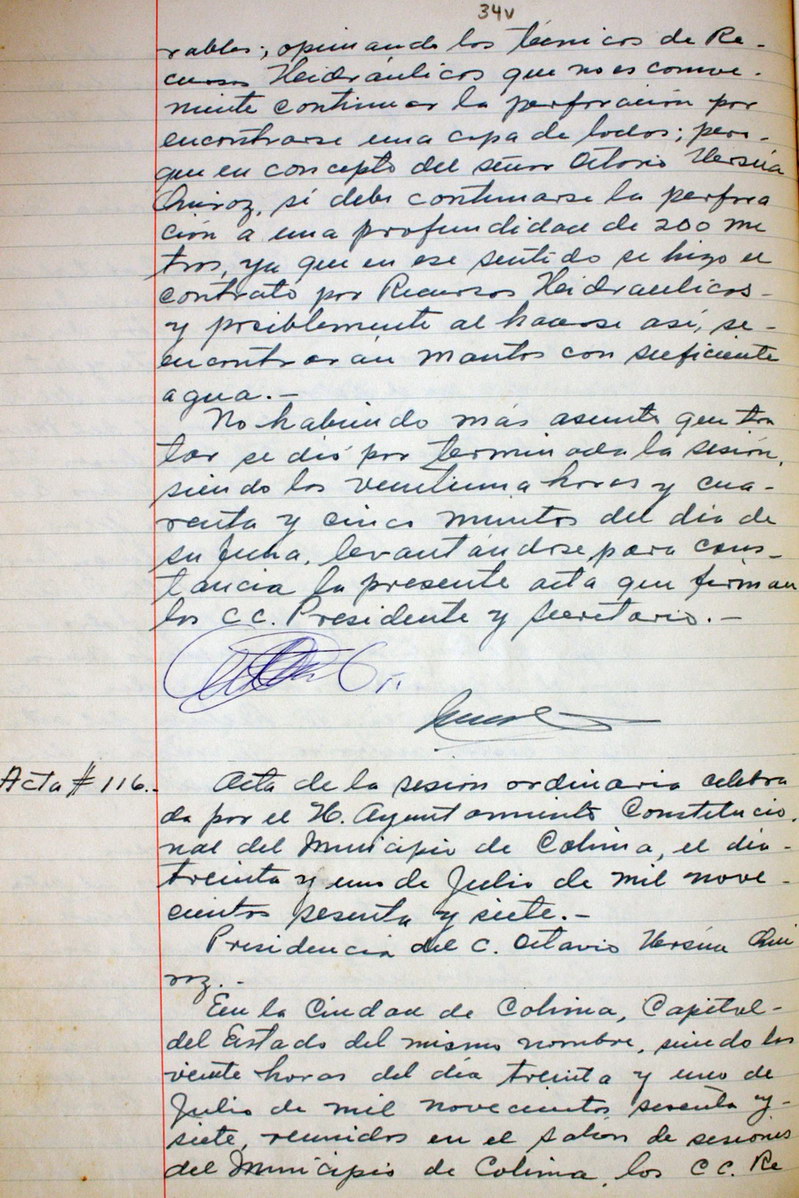 34v
rables; opinando los técnicos de Re-
cursos Heidráulicos que no es conve-
niente continuar la perforación por
encontrarse una capa de lodos; pero-
que en concepto del señor Octavio Versúa
Quiroz, sí debe continuarse la perfora
ción a una profundidad de 200 me
tros, ya que en ese sentido se hizo el
contrato por Recursos Heidraulicos-
y posiblemente al hacerse así, se-
encontrarán mantos con suficiente
agua.-
No habiendo más asunto que tra
tar se dió por terminada la sesión,
siendo las veintiuna horas y cua-
renta y cinco minutos del día de
su fecha, levantándose, para cons-
tancia la presente acta que firman
los CC. Presidente y Secretario.-
Acta # 116.-
Acta de la sesión ordinaria celebra
da por el H. Ayuntamiento Constitucio.
nal del Municipio de Colima, el día-
treinta y uno de Julio de mil nove-
cientos sesenta y siete.-
Presidencia del C. Octavio Versúa Qui
roz.-
En la Ciudad de Colima, Capital-
del Estado del mismo nombre, siendo las
veinte horas del día treinta y uno de
Julio de mil novecientos sesenta y-
siete, reunidos en el Salón de sesiones
del Municipio de Colima, los CC. Re